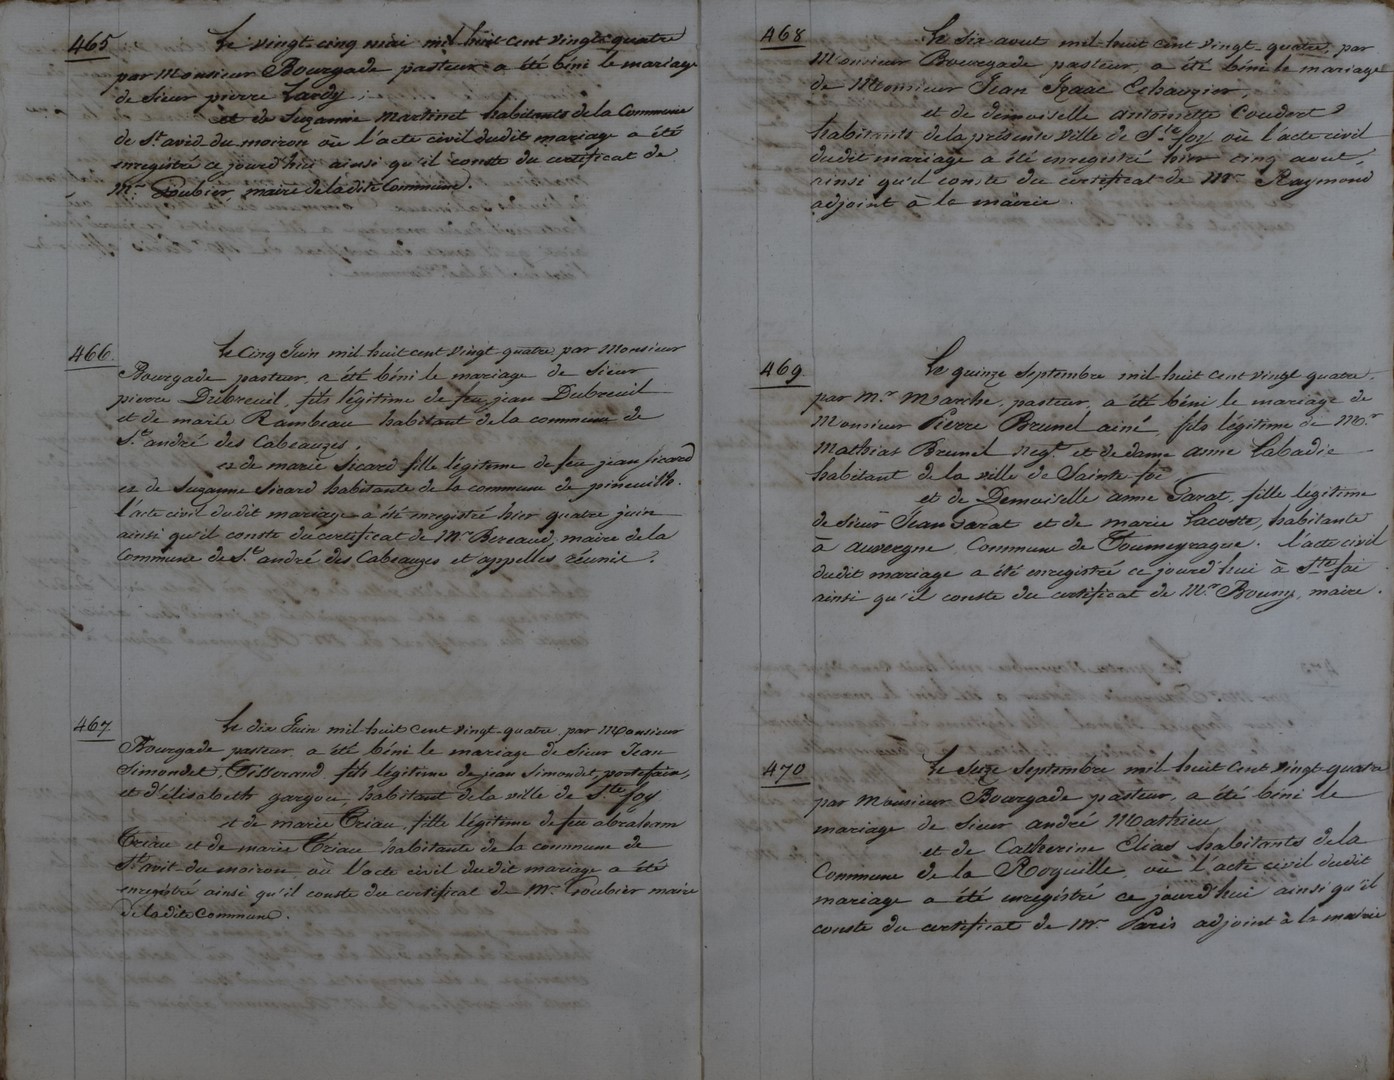 465
Le vingt cinq mai mil huit cent vingt-quatre
par Monsieur Bourgade pasteur a été béni le mariage
de Sieur pierre Lardy,
et de Suzanne Martinet habitants de la Commune
de St. avid du moiron où l'acte civil dudit mariage a été
enregistré ce jourd'hui ainsi qu'il conste du certificat de
Mr. Goubier, maire de la dite Commune.
466.
Le Cinq Juin mil huit cent vingt-quatre, par Monsieur
Bourgade pasteur, a été béni le mariage de Sieur
pierre Dubreuil, fils légitime de feu jean Dubreuil
et de marie Rambeau habitant de la commune de
St. andré des Cabeauzes,
et de marie Sicard fille légitime de feu jean Sicard
et de Suzanne Sicard habitante de la commune de pineuilh.
l'acte civil dudit mariage a été enregistré hier quatre juin
ainsi qu'il conste du certificat de Mr. Bereaud, maire de la
Commune de St. andré des Cabeauzes et appelles réunie.
467
Le dix Juin mil huit cent vingt-quatre, par Monsieur
Bourgade pasteur a été béni le mariage de Sieur Jean
Simondet, Tisserand, fils légitime de jean Simondet, portefaix,
et d'élisabeth gargou, habitant de la ville de Ste. foy
et de marie Triau, fille légitime de feu abraham
Triau et de marie Triau habitante de la commune de
St. avit du moiron, où l'acte civil dudit mariage a été
enregistré ainsi qu'il conste du certificat de Mr. Goubier maire
de la dite Commune.
468
Le Six aout mil-huit cent vingt-quatre, par
Monsieur Bourgade pasteur, a été béni le mariage
de Monsieur Jean Izaac Echauzier,
et de demoiselle antoinette Coudort
habitants de la présente ville de Ste. foy où l'acte civil
dudit mariage a été enregistré hier cinq aout,
ainsi qu'il conste du certificat de Mr. Raymond
adjoint à la mairie.
469
Le quinze Septembre mil huit cent vingt quatre,
par Mr. Marche, pasteur, a été béni le mariage de
Monsieur Pierre Brunel ainé, fils légitime de Mr.
Mathias Brunel negt. et de dame anne Labadie
habitant de la ville de Sainte foi
et de Demoiselle anne Sarat, fille légitime
de Sieur Jean Sarat et de marie Lacoste, habitante
à auvergne, Commune de Foumeyragues. l'acte civil
dudit mariage a été enregistré ce jourd'hui à Ste. foi
ainsi qu'il conste du certificat de Mr. Bouny, maire.
470
Le Seize Septembre mil huit cent vingt-quatre
par Monsieur Bourgade pasteur, a été béni le
mariage de Sieur andré Mathieu
et de Catherine Elias habitants de la
Commune de la Roquille, où l'acte civil dudit
mariage a été enregistré ce jourd'hui ainsi qu'il
conste du certificat de Mr. Paris adjoint à la mairie